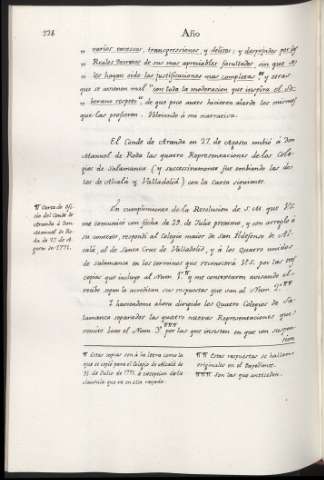 228 Año
„ varios excesos, transgresiones, y delitos; y despojados por
„ Reales Decretos de sus mas apreciables facultades, sin que
„ les hayan oido las justificaciones mas completas", y otras
que se usaron mal "con toda la moderacion que inspira el So-
berano respeto", de que poco antes hicieron alarde los mismos
que las profieren. Volviendo á mi narrativa.
El Conde de Aranda en 27 de Agosto embió á Don
Manuel de Roda las quatro Representaciones de los Cole-
gios de Salamanca (y succesivamente fue embiando las de
los de Alcalá y Valladolid) con la Carta siguiente.
¶ Carta de Ofi-
cio del Conde de
Aranda á Don
Manuel de Ro-
da de 27 de A-
gosto de 1771.
En cumplimiento de la Resolucion de S. M. que V.S.
me comunicó con fecha de 29 de Julio proximo, y con arreglo á
su contexto, respondí al Colegio mayor de San Ildefonso de Al-
calá, al de Santa Cruz de Valladolid, y á los Quatro unidos
de Salamanca en los terminos que reconocerá V.S. por las
copias que incluyo al Num. 1.º ¶ y me contextaron avisando el
recibo segun lo acreditan sus respuestas que van al Num. 2.º ¶¶
Y haviendome ahora dirigido los Quatro Colegios de Sa-
lamanca separados las quatro nuevas Representaciones que
remito bajo el Num. 3.º ¶¶¶ por las que insisten en que se suspen-
sion
¶ Estas copias son á la letra como la
que se copió para el Colegio de Alcalá de
31 de Julio de 1771. á excepcion de la
clausula que va en ella rayada.
¶¶ Estas respuestas se hallan
originales en el Expediente.
¶¶¶ Son las que anteceden.